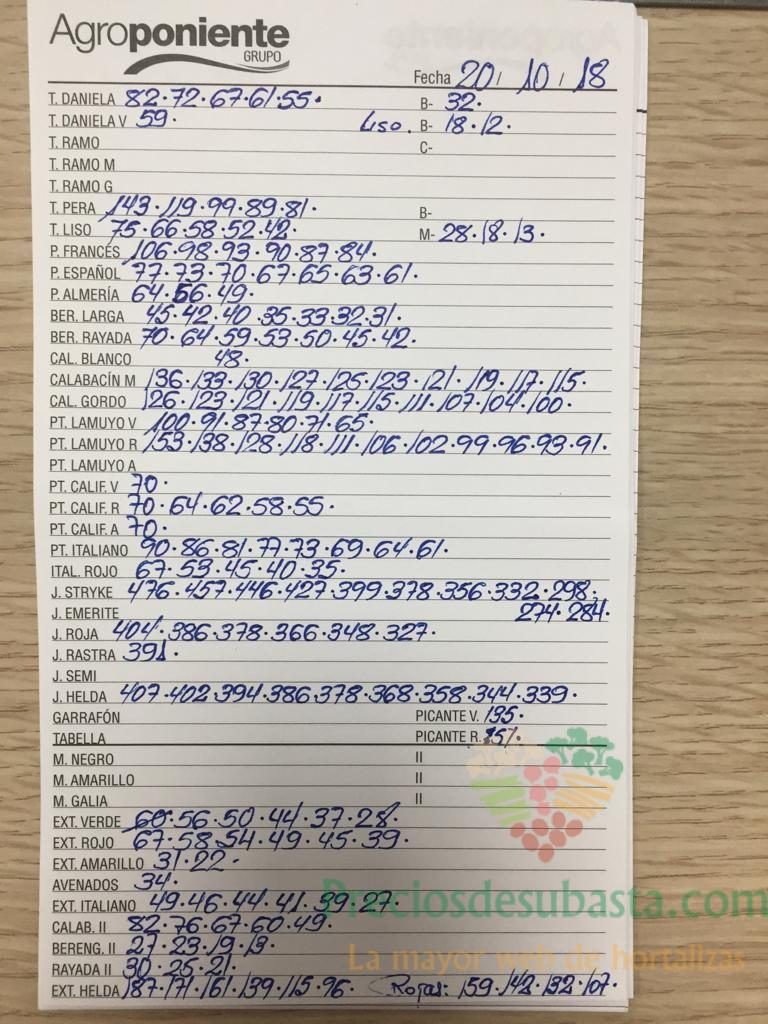 Agroponiente
GRUPO
Fecha 20 / 10 / 18
T. DANIELA 82·72·67·61·55· B- 32·
T. DANIELA V 59· Liso. B- 18·12·
T. RAMO C-
T. RAMO M
T. RAMO G
T. PERA 143·119·99·89·81· B-
T. LISO 75·66·58·52·42· M- 28·18·13·
P. FRANCÉS 106·98·93·90·87·84·
P. ESPAÑOL 77·73·70·67·65·63·61·
P. ALMERÍA 64·56·49·
BER. LARGA 45·42·40·35·33·32·31·
BER. RAYADA 70·64·59·53·50·45·42·
CAL. BLANCO 48·
CALABACÍN M 136·133·130·127·125·123·121·119·117·115·
CAL. GORDO 126·123·121·119·117·115·111·107·104·100·
PT. LAMUYO V 100·91·87·80·71·65·
PT. LAMUYO R 153·138·128·118·111·106·102·99·96·93·91·
PT. LAMUYO A
PT. CALIF. V 70·
PT. CALIF. R 70·64·62·58·55·
PT. CALIF. A 70·
PT. ITALIANO 90·86·81·77·73·69·64·61·
ITAL. ROJO 67·53·45·40·35·
J. STRYKE 476·457·446·427·399·378·356·332·298·
J. EMERITE 274·284·
J. ROJA 404·386·378·366·348·327·
J. RASTRA 391·
J. SEMI
J. HELDA 407·402·394·386·378·368·358·344·339·
GARRAFÓN PICANTE V. 195·
TABELLA PICANTE R. 157·
M. NEGRO II
M. AMARILLO II
M. GALIA II
EXT. VERDE 60·56·50·44·37·28·
EXT. ROJO 67·58·54·49·45·39·
EXT. AMARILLO 31·22·
AVENADOS 34·
EXT. ITALIANO 49·46·44·41·39·27·
Preciosdesubasta.com
CALAB. II 82·76·67·60·49·
BERENG. II 27·23·19·13·
La mayor web de hortalizas
RAYADA II 30·25·21·
EXT. HELDA 187·171·161·139·115·96· Rojas: 159·142·132·107·